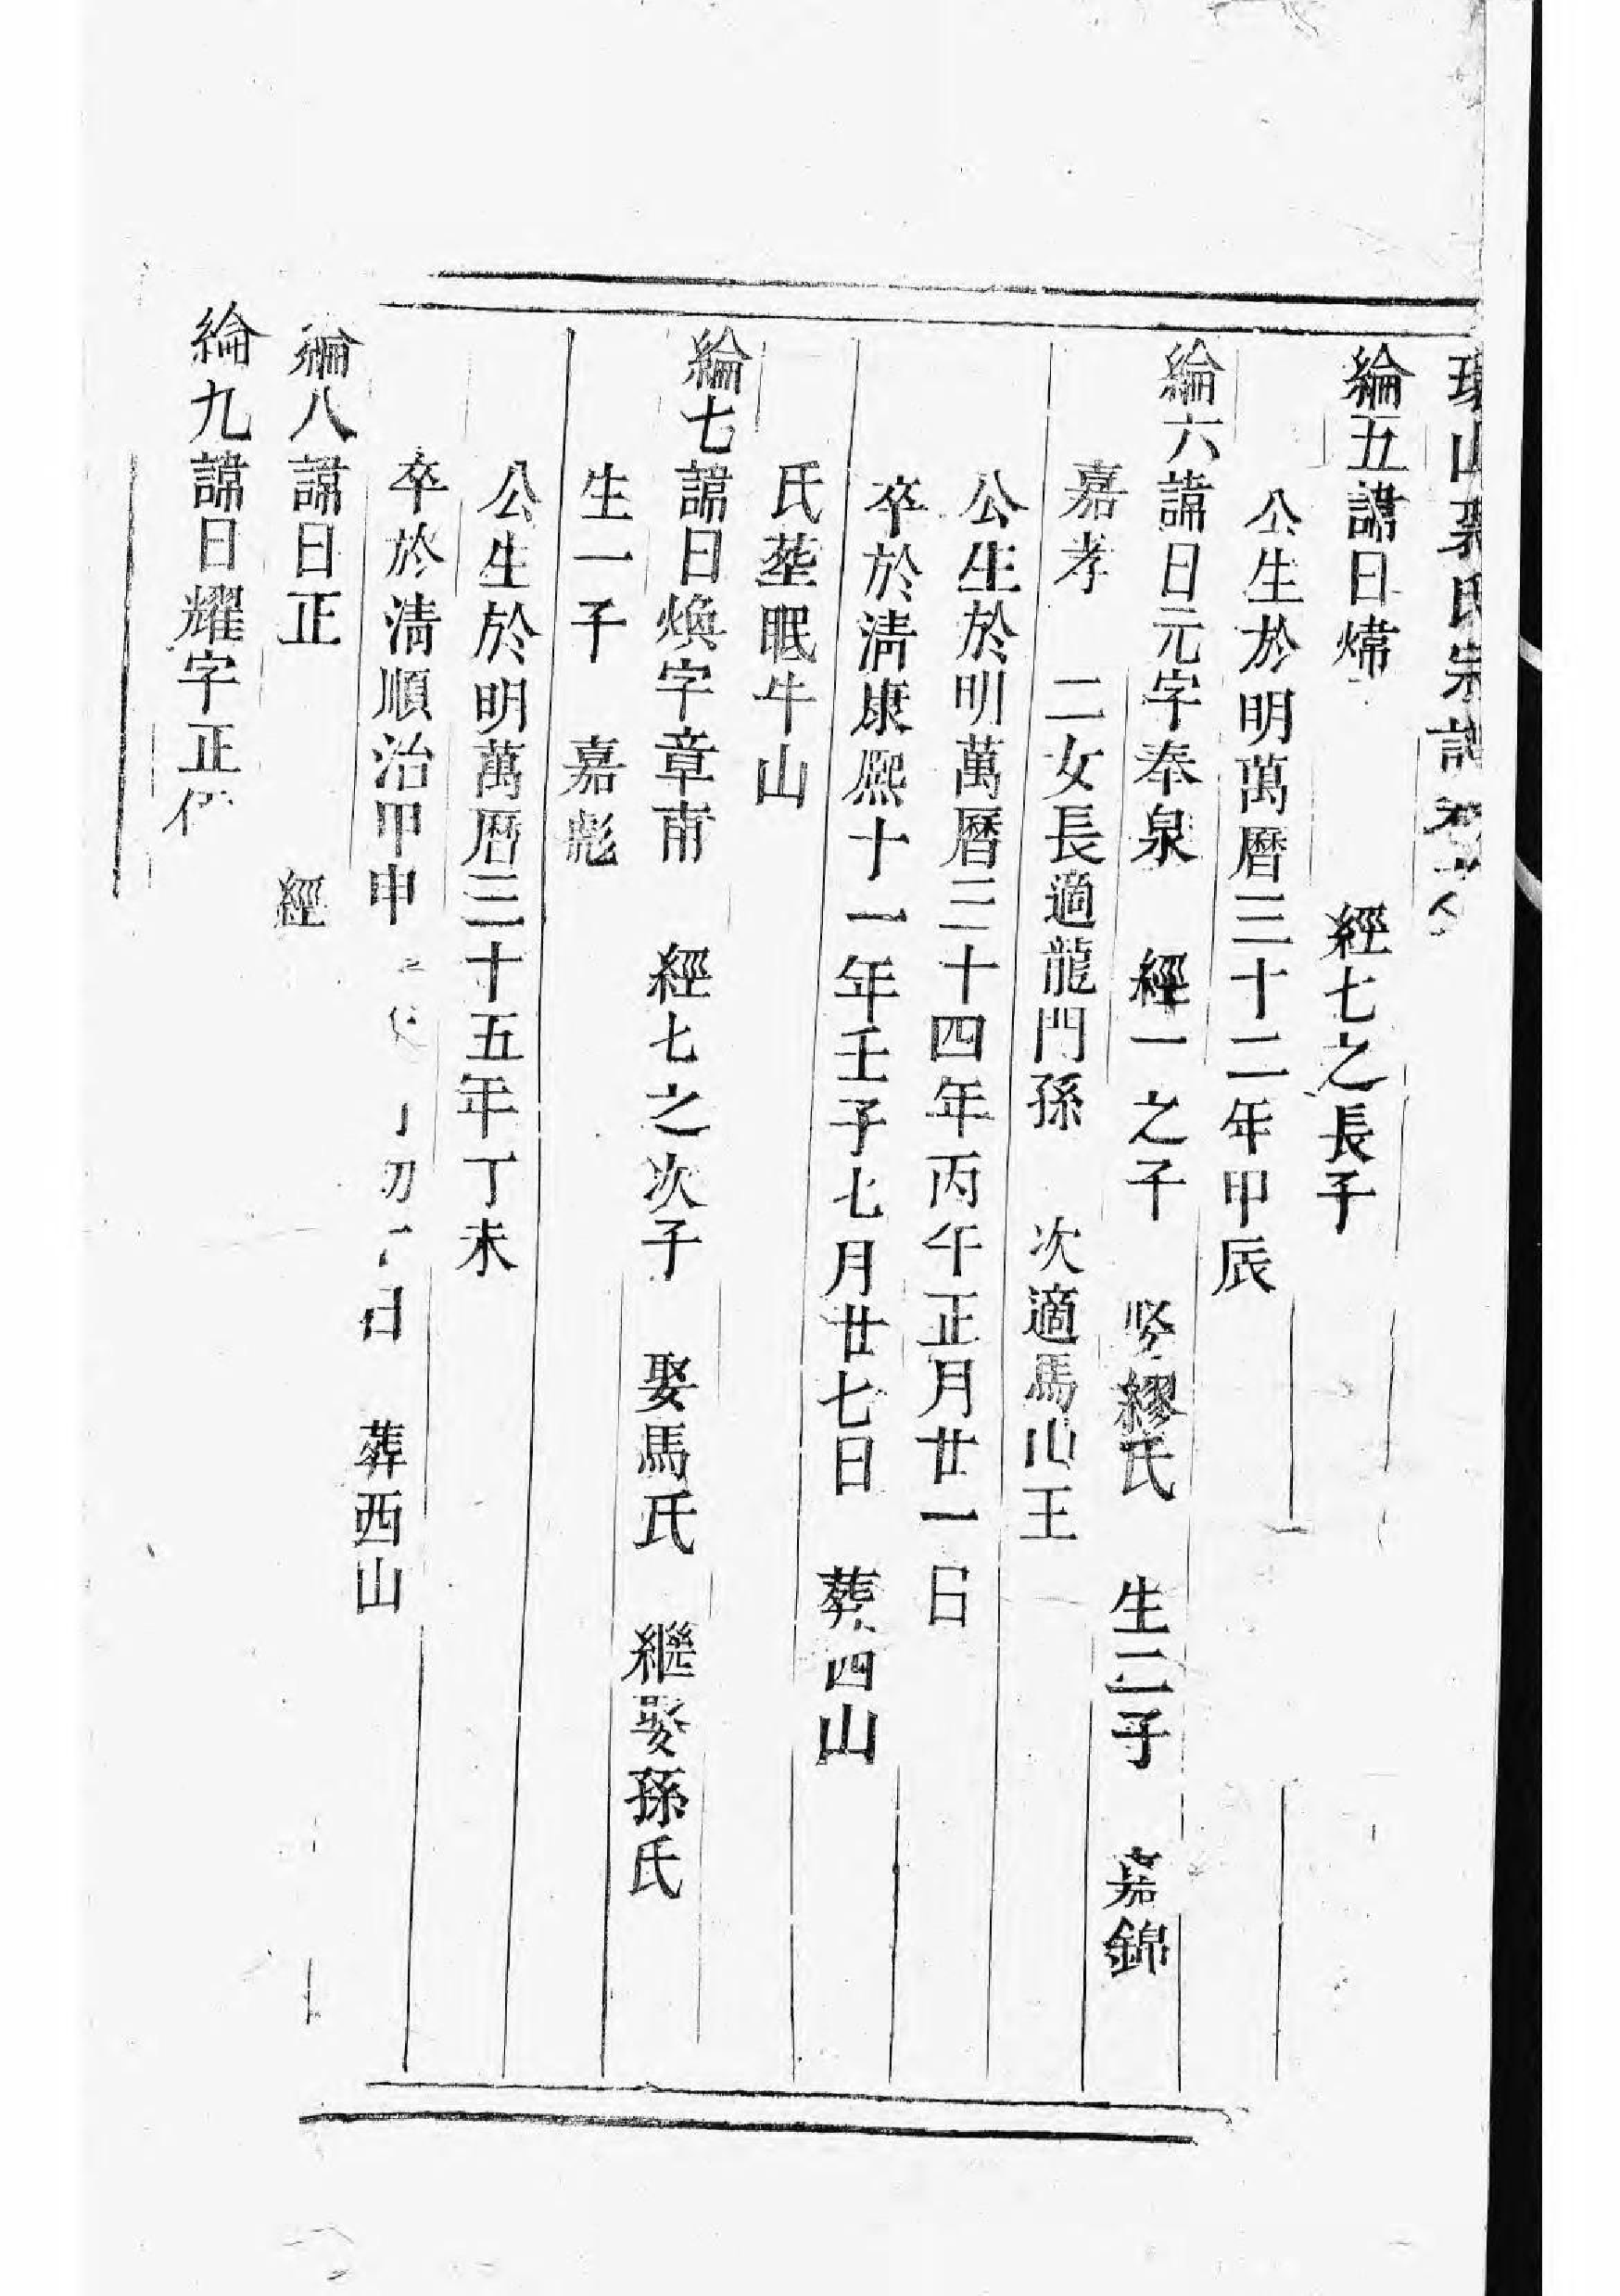 山裘氏宗譜卷
綸五諱曰煒 經七之長子
公生於明萬曆三十二年甲辰
綸六諱曰元字奉泉 經一之子 娶繆氏 生二子 嘉錦
嘉孝 二女長適龍門孫 次適馬山王
公生於明萬曆三十四年丙午正月廿一日
卒於淸康熙十一年壬子七月廿七日 葬西山
氏塟眠牛山
綸七諱曰煥字章甫 經七之次子 娶馬氏 繼娶孫氏
生一子 嘉彪
公生於明萬曆三十五年丁未
卒於淸順治甲申 初 日 葬西山
綸八諱曰正 經
綸九諱曰耀字正